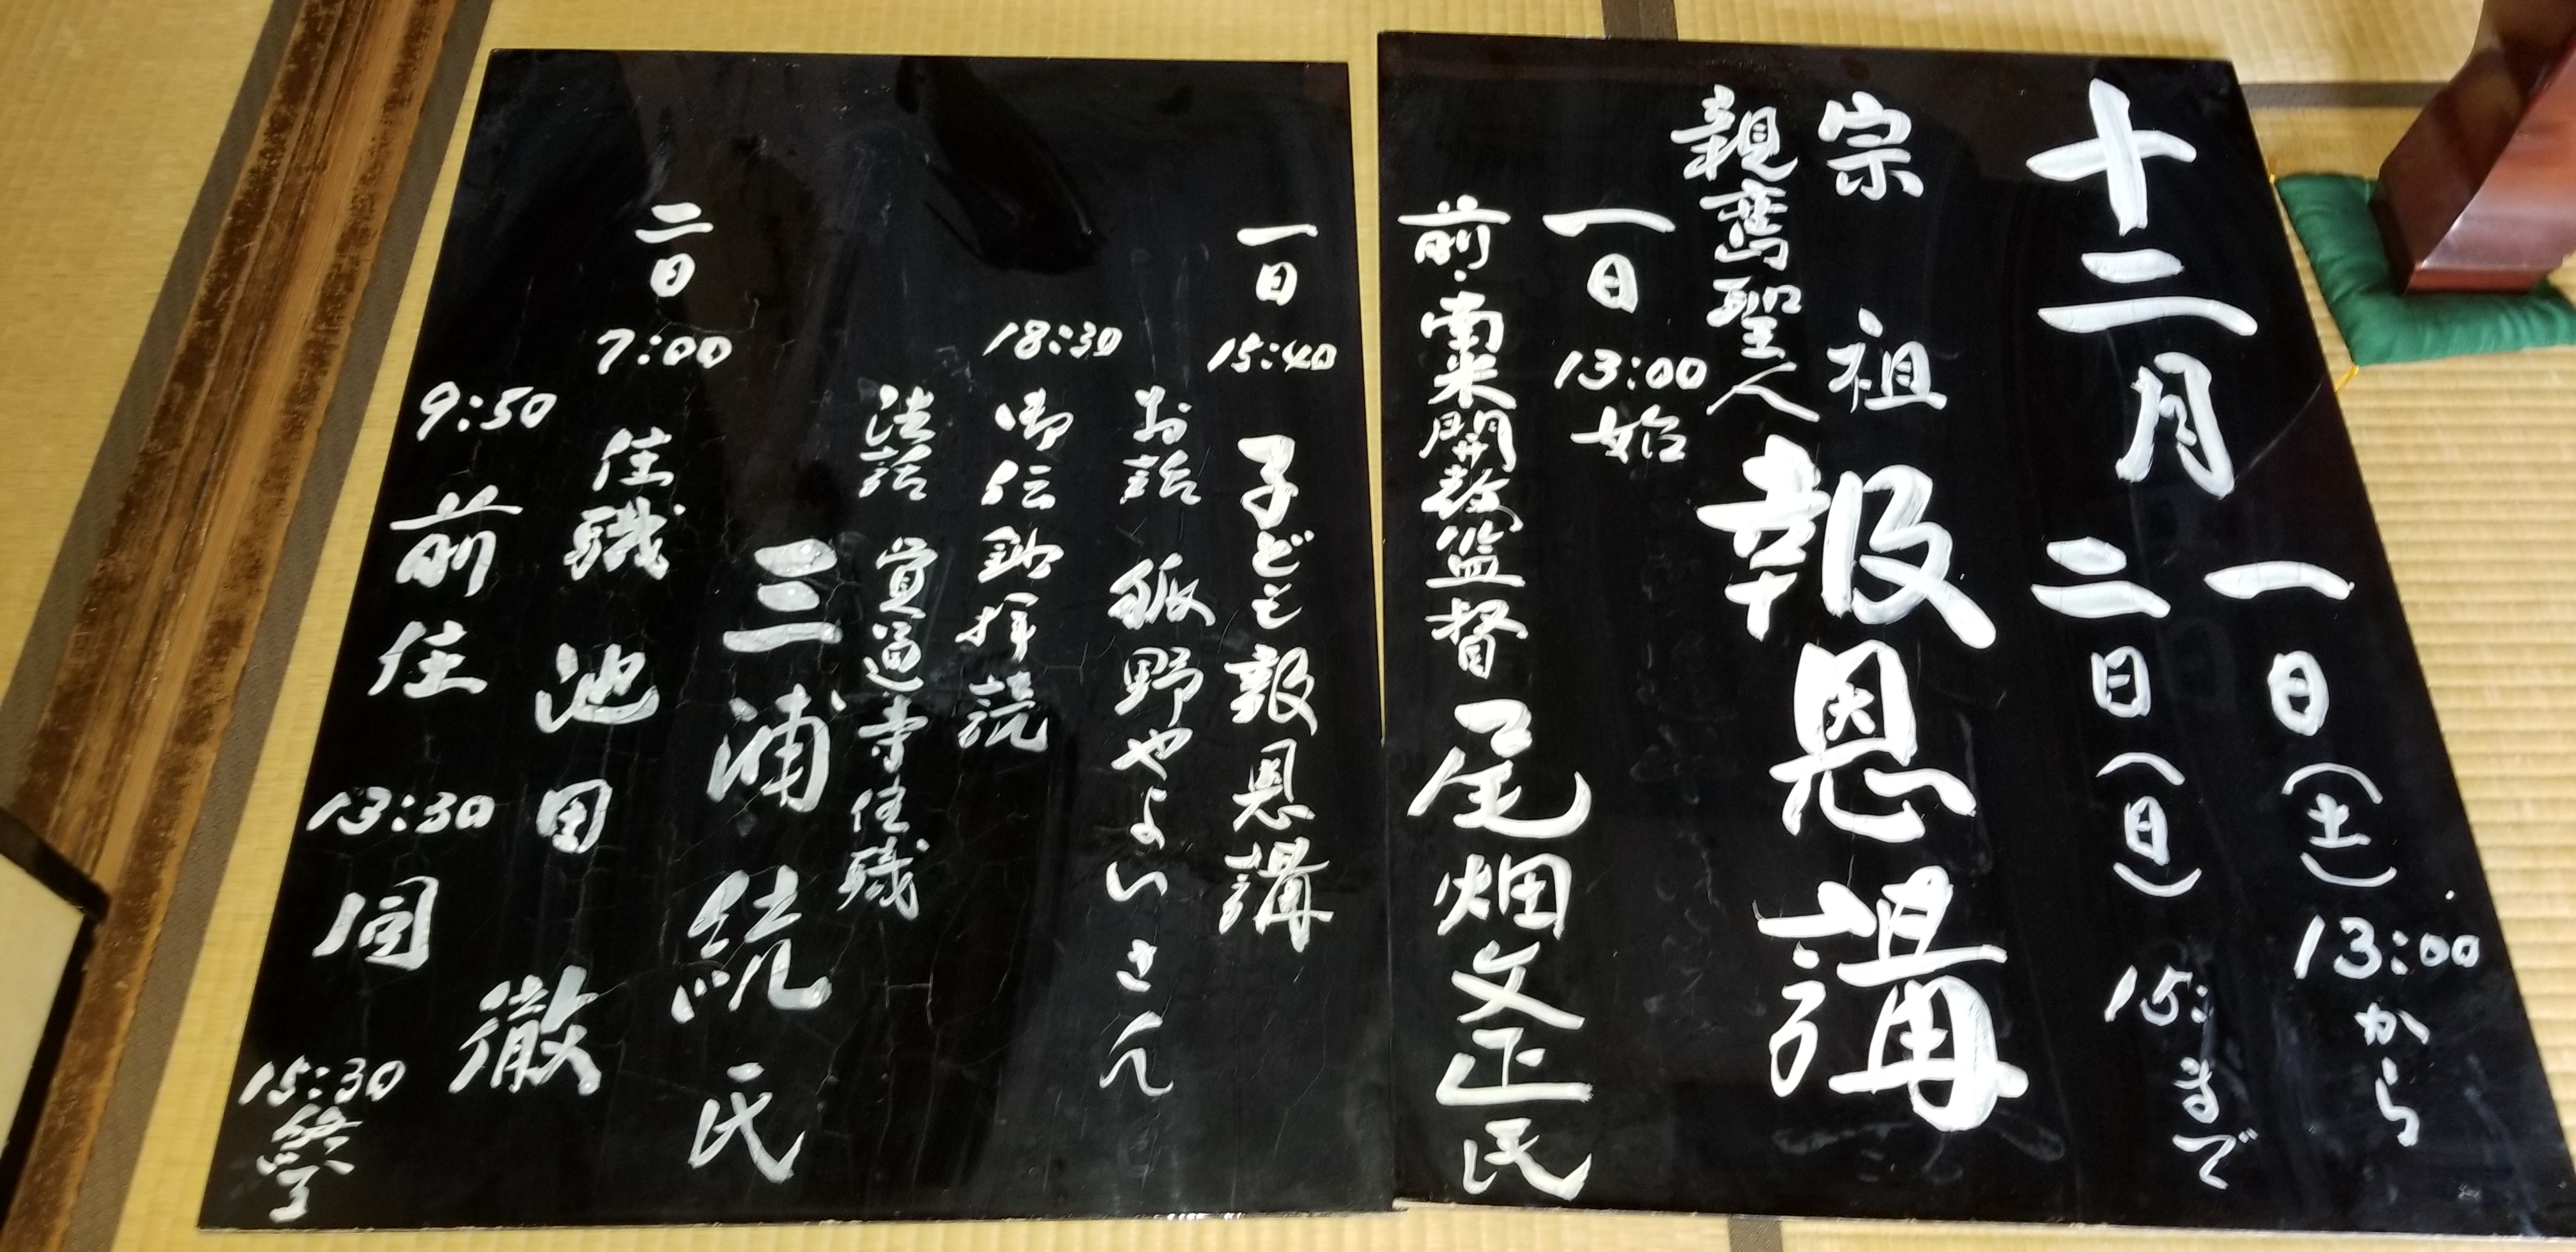 十二月
一日(土)13:00から
二日(日)15:まで
宗祖
親鸞聖人
報恩講
一日 13:00 始
前・南米開教監督 尾畑文正氏
一日 15:40 子ども報恩講
お話 狐野やよいさん
18:30 御伝鈔拝読
法話 賢通寺住職
三浦統氏
二日 7:00 住職 池田徹
9:50 前住
13:30 同
15:30 終了